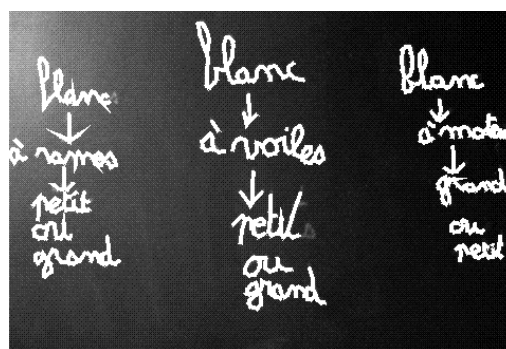 blanc
à rames
petit
ou
grand
blanc
à voiles
petit
ou
grand
blanc
à mote
grand
ou
petit